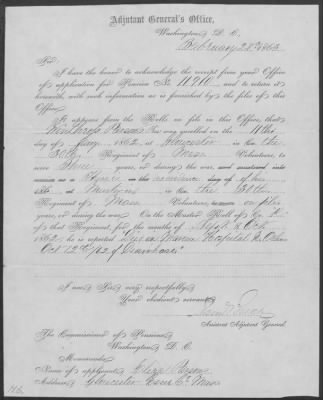 Adjutant General's Office,
Washington D. C.
February 28th 1863
Sir:
I have the honor to acknowledge the receipt from your Office
of application for Pension No. 11.910 and to return it
herewith, with such information as is furnished by the files of this
Office.
It appears from the Rolls on file in this Office, that
Winthrop was enrolled on the 11th
day of 1862 at Gloucester in Co.
30th Regiment of Mass Volunteers, to
serve years, or during the war, and mustered into
service as a on the day of
186 at in Co. the 30th
Regiment of Mass Volunteers, to serve
years, or during the war. On the Muster Roll of Co.
of that Regiment, for the months of Sept & Oct
1862, he is reported "Died at Marine Hospital N. Orleans
Oct 12th/62 of Diarrhoea"
I am Sir, very respectfully,
Your obedient servant,
Assistant Adjutant General.
The Commissioner of Pensions
Washington D. C.
Memoranda:
Name of applicant, Eliza
Address, Gloucester Essex Co. Mass